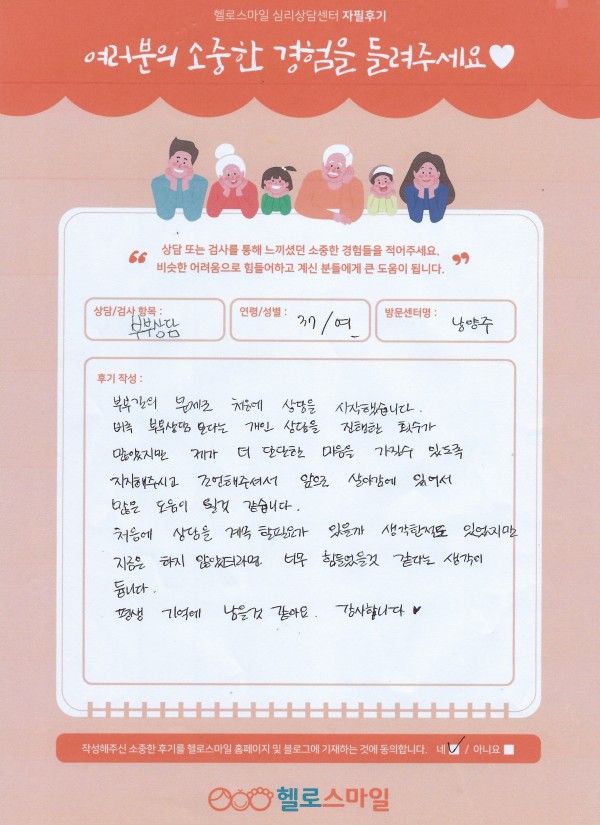 헬로스마일 심리상담센터 자필후기
여러분의 소중한 경험을 들려주세요♥
“ 상담 또는 검사를 통해 느끼셨던 소중한 경험들을 적어주세요.
비슷한 어려움으로 힘들어하고 계신 분들에게 큰 도움이 됩니다. ”
상담/검사 항목 : 부부상담
연령/성별 : 37/여
방문센터명 : 남양주
후기 작성 :
부부간의 문제로 처음에 상담을 시작했습니다.
비록 부부상담 보다는 개인 상담을 진행한 회수가
많았지만 제가 더 단단한 마음을 가질수 있도록
지지해주시고 조언해주셔서 앞으로 살아감에 있어서
많은 도움이 될것 같습니다.
처음에 상담을 계속 할필요가 있을까 생각한적도 있었지만
지금은 하지 않았더라면 너무 힘들었을것 같다는 생각이
듭니다.
평생 기억에 남을것 같아요. 감사합니다 ♥
작성해주신 소중한 후기를 헬로스마일 홈페이지 및 블로그에 기재하는 것에 동의합니다. 네 ✓ / 아니요
헬로스마일